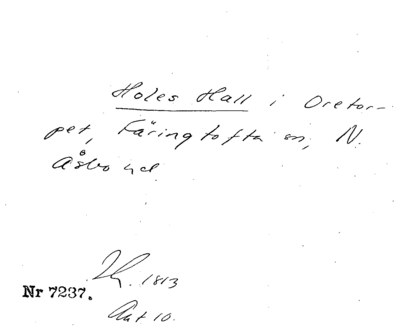 Holes Hall i Oretor-
pet, Färingtofta sn, N.
Åsbo hd.
1813
Nr 7237.
Aut 10.